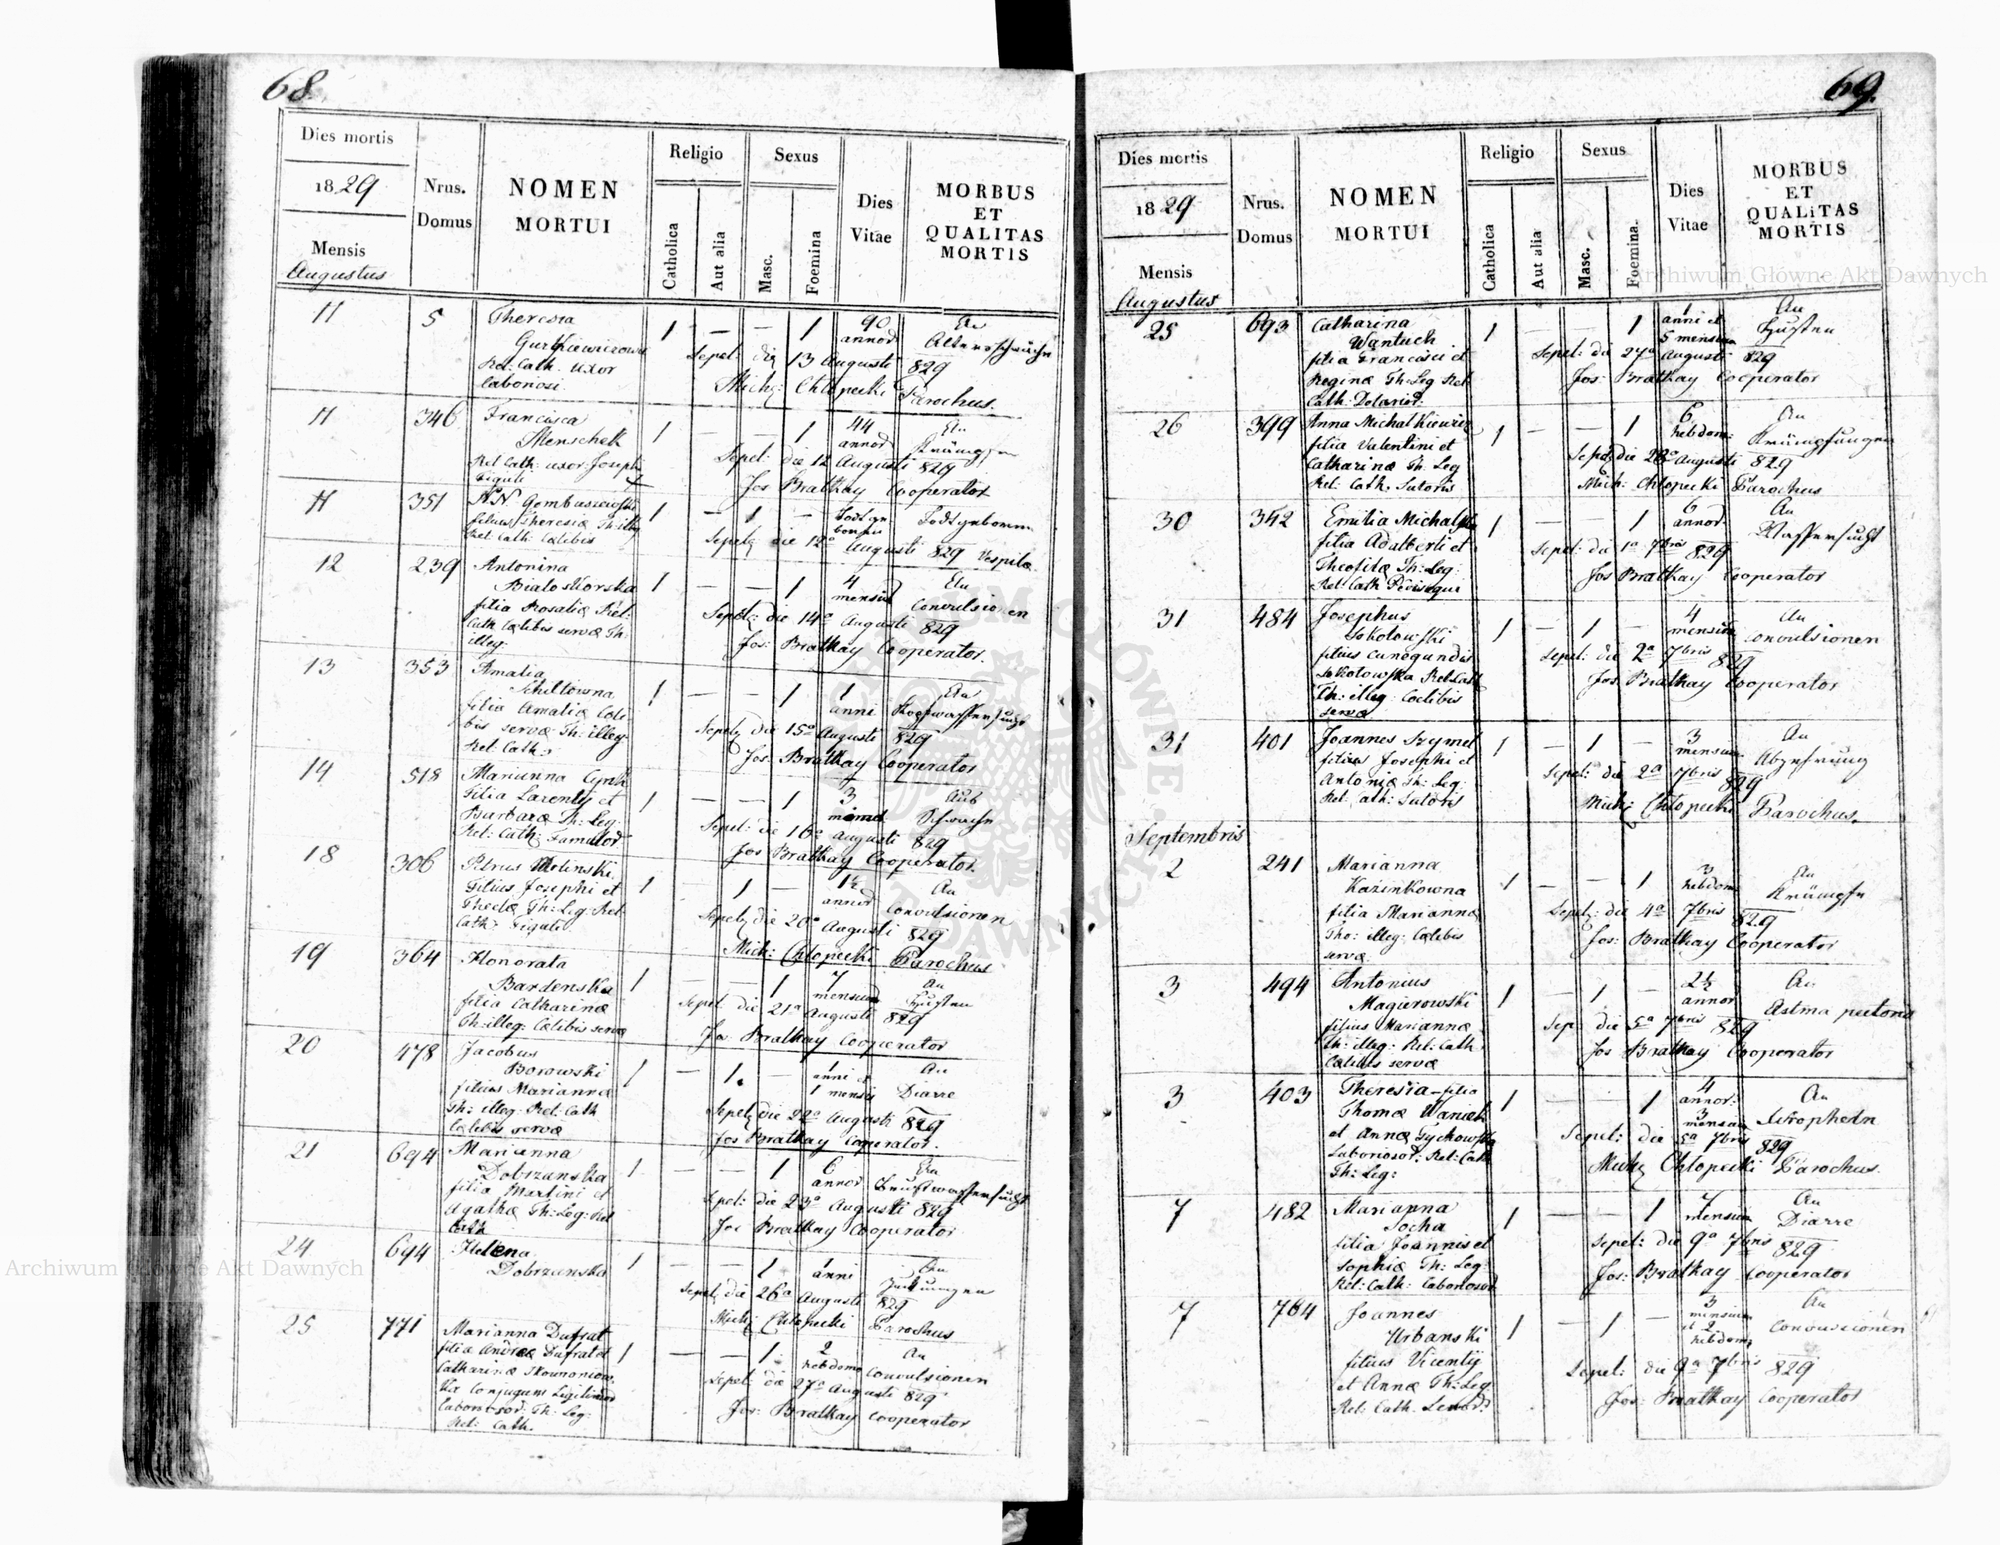 68.
Dies mortis
1829
Mensis
Augustus
Nrus.
Domus
NOMEN
MORTUI
Religio
Catholica
Aut alia
Sexus
Masc.
Foemina
Dies
Vitae
MORBUS
ET
QUALITAS
MORTIS
11 5 Theresia 1 — — 1 90 An
annor Altersschwäche
Rel: Cath. uxor Sepel: die 13 Augusti 829
Laboriosi Mich: Chłopecki Parochus.
11 346 Francisca 1 — — 1 44 An
annor
Rel: Cath: uxor Josephi Sepel: die 12 Augusti 829
Figuli Jos Brathay Cooperator
11 351 N.N. 1 — 1 —
filius Theresiæ Th: illeg Todtgeboren
Rel: Cath: Cælibis Sepel: die 12a Augusti 829
12 239 Antonina 1 — — 1 4 An
Białoskorska mensium Convulsionen
filia Rosaliæ Rel: Sepel: die 14a Augusti 829
Cath Cælibis servæ Th: Jos: Brathay Cooperator.
illeg:
13 353 Amalia 1 — — 1 1 An
anni Kopfwassersucht
filia Amaliæ Cœli Sepel: die 15a Augusti 829
bis servæ Th: illeg: Jos: Brathay Cooperator
Rel: Cath:
14 518 Marianna 1 — — 1 3 Aus
filia Laurenty et Schwäche
Barbaræ Th: Leg: Sepel: die 16a Augusti 829
Rel: Cath: Famulor Jos Brathay Cooperator.
18 306 Petrus 1 — 1 — 1½ An
filius Josephi et annor Convulsionen
Theclæ Th: Leg: Rel: Sepel: die 20a Augusti 829
Cath: Figuli Mich: Chłopecki Parochus
19 364 Honorata 1 — — 1 7 An
Bardenska mensium Husten
filia Catharinæ Sepel: die 21a Augusti 829
Th: illeg: Cælibis servæ Jos Brathay Cooperator
20 478 Jacobus 1 — 1 — 1 An
Borowski anni et Diarre
filius Mariannæ 1 mensis
Th: illeg: Rel: Cath Sepel: die 22a Augusti 829
Cælibis servæ Jos Brathay Cooperator.
21 694 Marianna 1 — — 1 6 An
Dobrzanska annor Brustwassersucht
filia Martini et Sepel: die 23a Augusti 829
Agathæ Th: Leg: Rel Jos Brathay Cooperator
Cath
24 694 Helena 1 — — 1 1 An
Dobrzanska anni
Sepel: die 26a Augusti 829
Mich: Chłopecki Parochus
25 771 Marianna Dufrat 1 — — 1 2 An
filia Andreæ Dufrat et hebdom: Convulsionen
Catharinæ Sepel: die 27a Augusti 829
Conjugum Legitimor Jos: Brathay Cooperator
Th: Leg:
Rel: Cath.
69.
Dies mortis
1829
Mensis
Augustus
Nrus.
Domus
NOMEN
MORTUI
Religio
Catholica
Aut alia
Sexus
Masc.
Foemina.
Dies
Vitae
MORBUS
ET
QUALITAS
MORTIS
25 693 Catharina 1 — — 1 anni et An
Wantuch 5 mensium Husten
filia Francisci et Sepel: die 27a Augusti 829
Reginæ Th: Leg Rel: Jos: Brathay Cooperator
Cath:
26 399 Anna Michalkiewicz 1 — — 1 6 An
filia Valentini et hebdom: Krämpfungen
Catharinæ Th. Leg Sepel: die 28a Augusti 829
Rel: Cath. Sutoris Mich: Chłopecki Parochus
30 342 Emilia Michalska 1 — — 1 6 An
filia Adalberti et annor Wassersucht
Theofilæ Th: Leg: Sepel: die 1a 7bris 829
Rel: Cath Jos Brathay Cooperator
31 484 Josephus 1 — 1 — 4 An
Sokołowski mensium Convulsionen
filius Cunegundis Sepel: die 2a 7bris 829
Sokołowska Rel: Cath Jos: Brathay Cooperator
Th: illeg: Cœlibis
servæ
31 401 Joannes Szymel 1 — 1 — 3 An
filius Josephi et mensium Abzehrung
Antoniæ Th: Leg: Sepel: die 2a 7bris 829
Rel: Cath: Sutoris Mich: Chłopecki Parochus.
Septembris
2 241 Marianna 1 — — 1 3 An
Kazinkowna hebdom Krämpfe
filia Mariannæ Sepel: die 4a 7bris 829
Tho: illeg: Cælibis Jos: Brathay Cooperator
servæ
3 494 Antonius 1 — 1 — 2½ An
Magierowski annor Astma pectoris
filius Mariannæ Sep die 5a 7bris 829
Th: illeg: Rel: Cath Jos Brathay Cooperator
Cælibis servæ
3 403 Theresia filia 1 — — 1 4 annor: An
Thomæ Waniek 3 mensium
et Annæ Tychowska Sepel: die 5a 7bris 829
Laboriosor: Rel: Cath Mich: Chłopecki Parochus.
Th: Leg:
7 482 Marianna 1 — — 1 7 An
Socha mensium Diarre
filia Joannis et Sepel: die 9a 7bris 829
Sophiæ Th: Leg: Jos: Brathay Cooperator
Rel: Cath: Laboriosor
7 784 Joannes 1 — 1 — 3 An
Urbanski mensium et 2 hebdom: Convulsionen
filius Vicenty Sepel: die 9a 7bris 829
et Annæ Th: Leg Jos: Brathay Cooperator
Rel: Cath.
Archiwum Główne Akt Dawnych
Archiwum Główne Akt Dawnych
ARCHIWUM GŁÓWNE AKT DAWNYCH